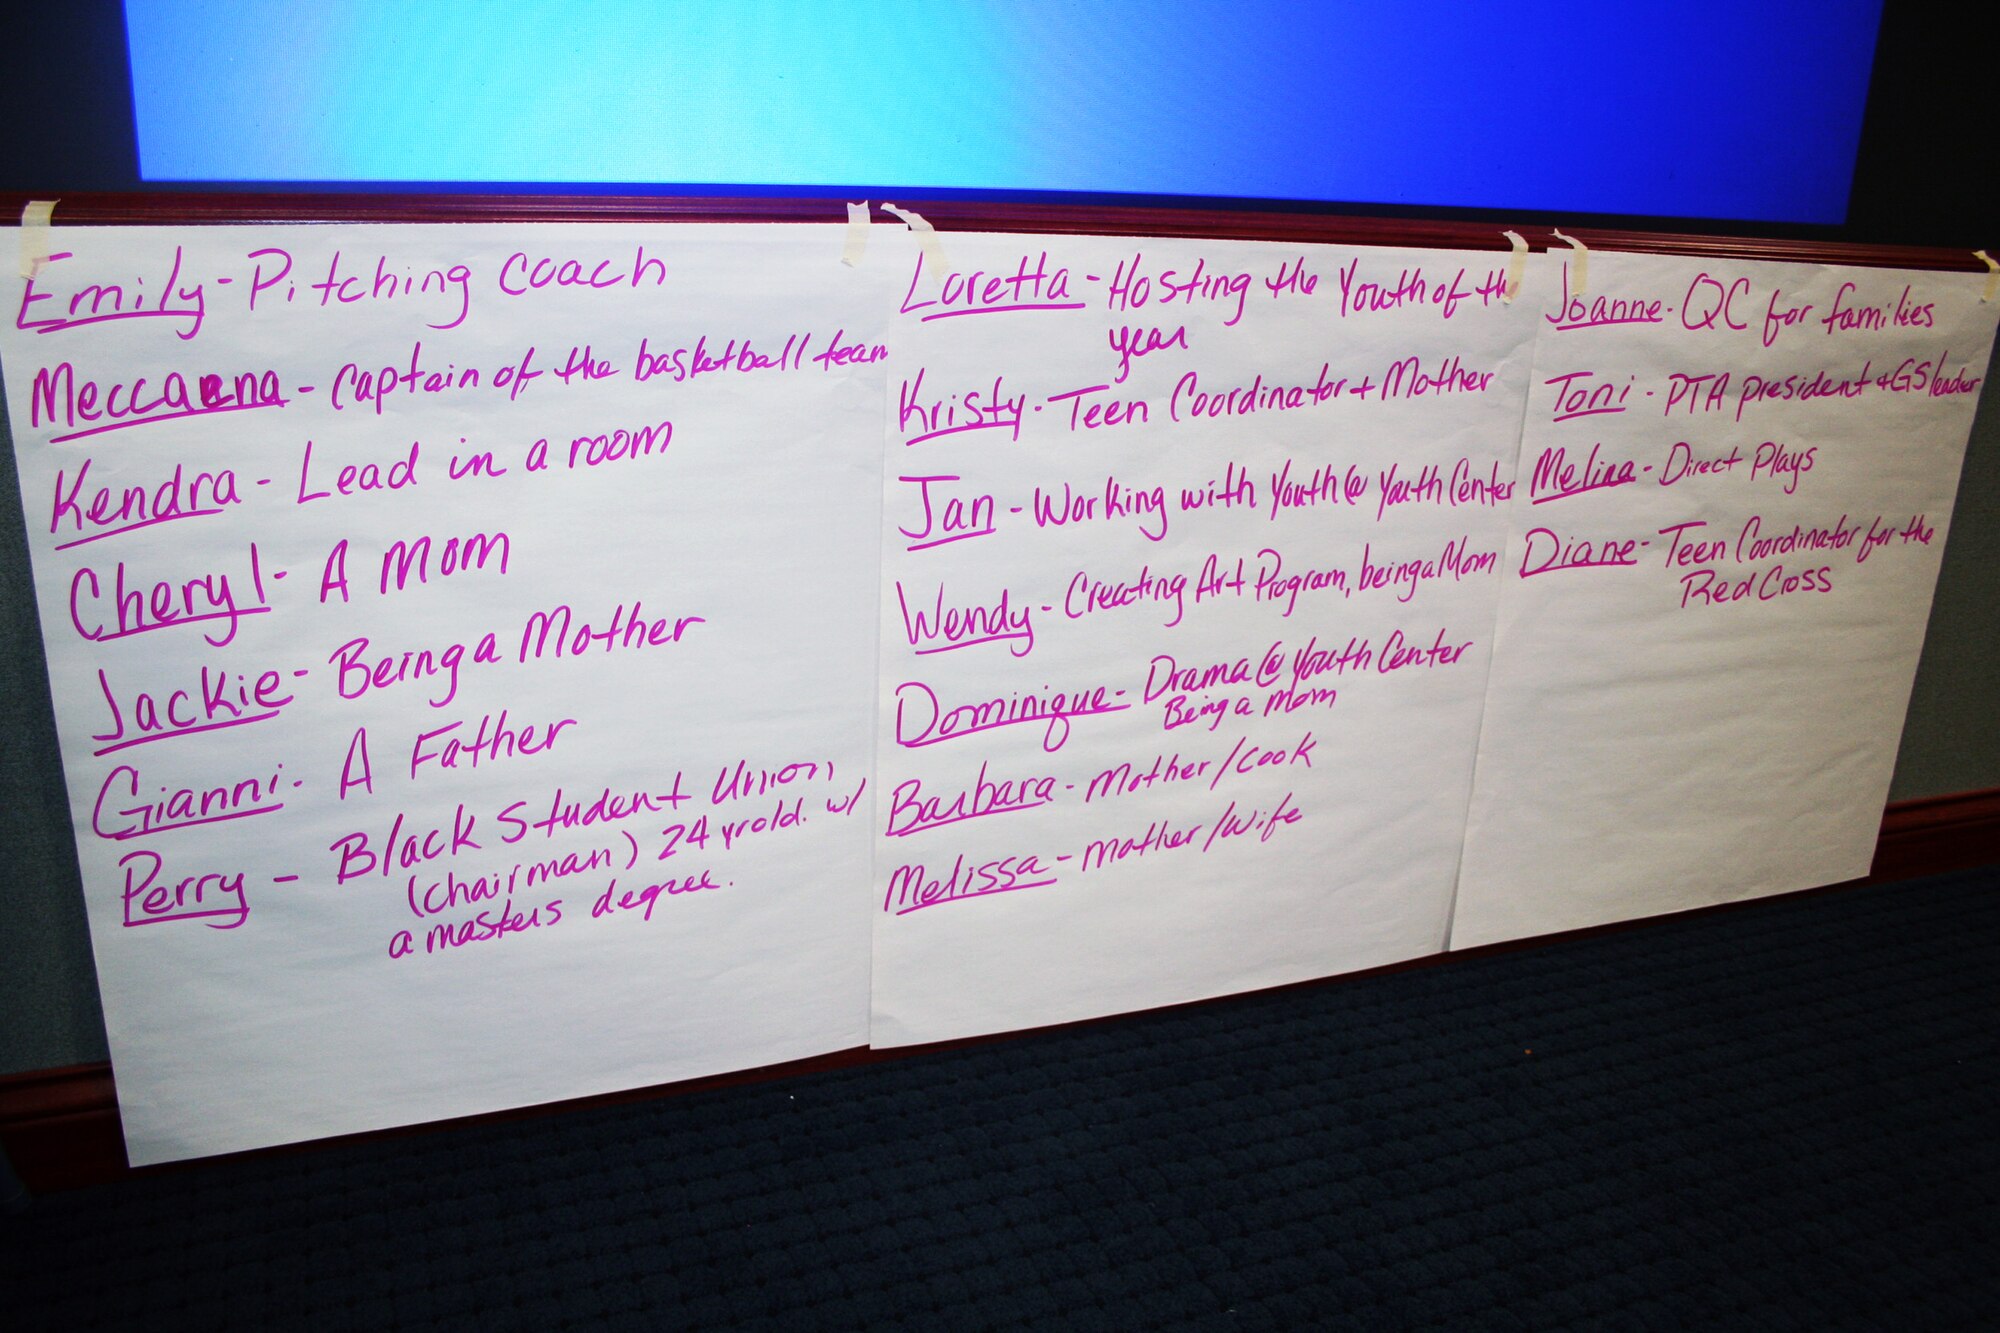 Emily - Pitching Coach
Meccaena - Captain of the basketball team
Kendra - Lead in a room
Cheryl - A Mom
Jackie - Being a Mother
Gianni - A Father
Perry - Black Student Union
(chairman) 24 yr old. w/
a masters degree.
Loretta - Hosting the Youth of the
year
Kristy - Teen Coordinator + Mother
Jan - Working with Youth @ Youth Center
Wendy - Creating Art Program, being a Mom
Dominique - Drama @ Youth Center
Being a mom
Barbara - Mother/Cook
Melissa - Mother/Wife
Joanne - QC for families
Toni - PTA president + GS leader
Melina - Direct Plays
Diane - Teen Coordinator for the
Red Cross